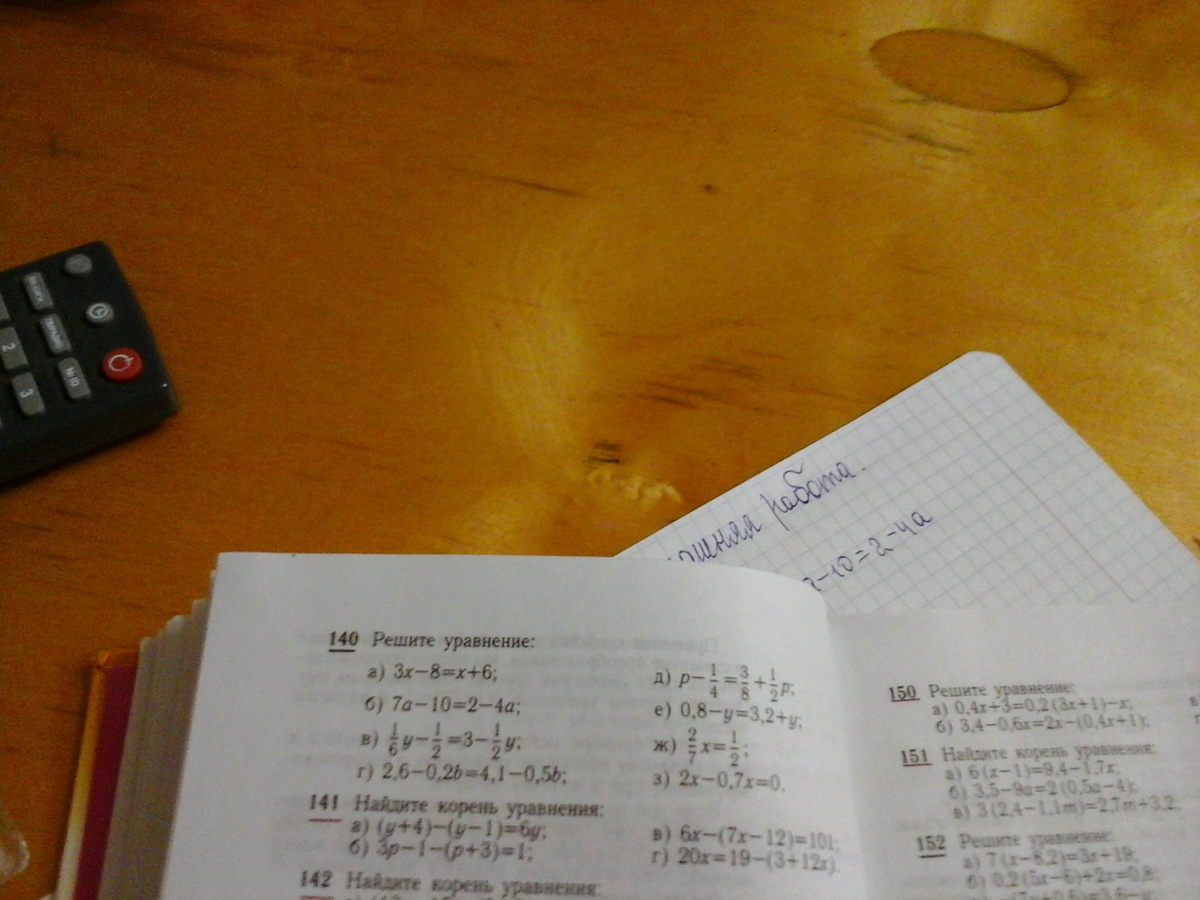 2
3
№10
ашняя работа.
а-10=2-4а
140 Решите уравнение:
а) 3x−8=x+6;
б) 7a−10=2−4a;
в) 1/6 y−1/2=3−1/2 y;
г) 2,6−0,2b=4,1−0,5b;
д) p−1/4=3/8+1/2 p;
е) 0,8−y=3,2+y;
ж) 2/7 x=1/2;
з) 2x−0,7x=0.
141 Найдите корень уравнения:
а) (y+4)−(y−1)=6y;
б) 3p−1−(p+3)=1;
в) 6x−(7x−12)=101;
г) 20x=19−(3+12x).
142 Найдите корень уравнения:
150 Решите уравнение:
а) 0,4x+3=0,2(3x+1)−x;
б) 3,4−0,6x=2x−(0,4x+1);
151 Найдите корень уравнения:
а) 6(x−1)=9,4−1,7x;
б) 3,5−9a=2(0,5a−4);
в) 3(2,4−1,1m)=2,7m+3,2;
152 Решите уравнение:
а) 7(x−8,2)=3x+19;
б) 0,2(5x−6)+2x=0,8;